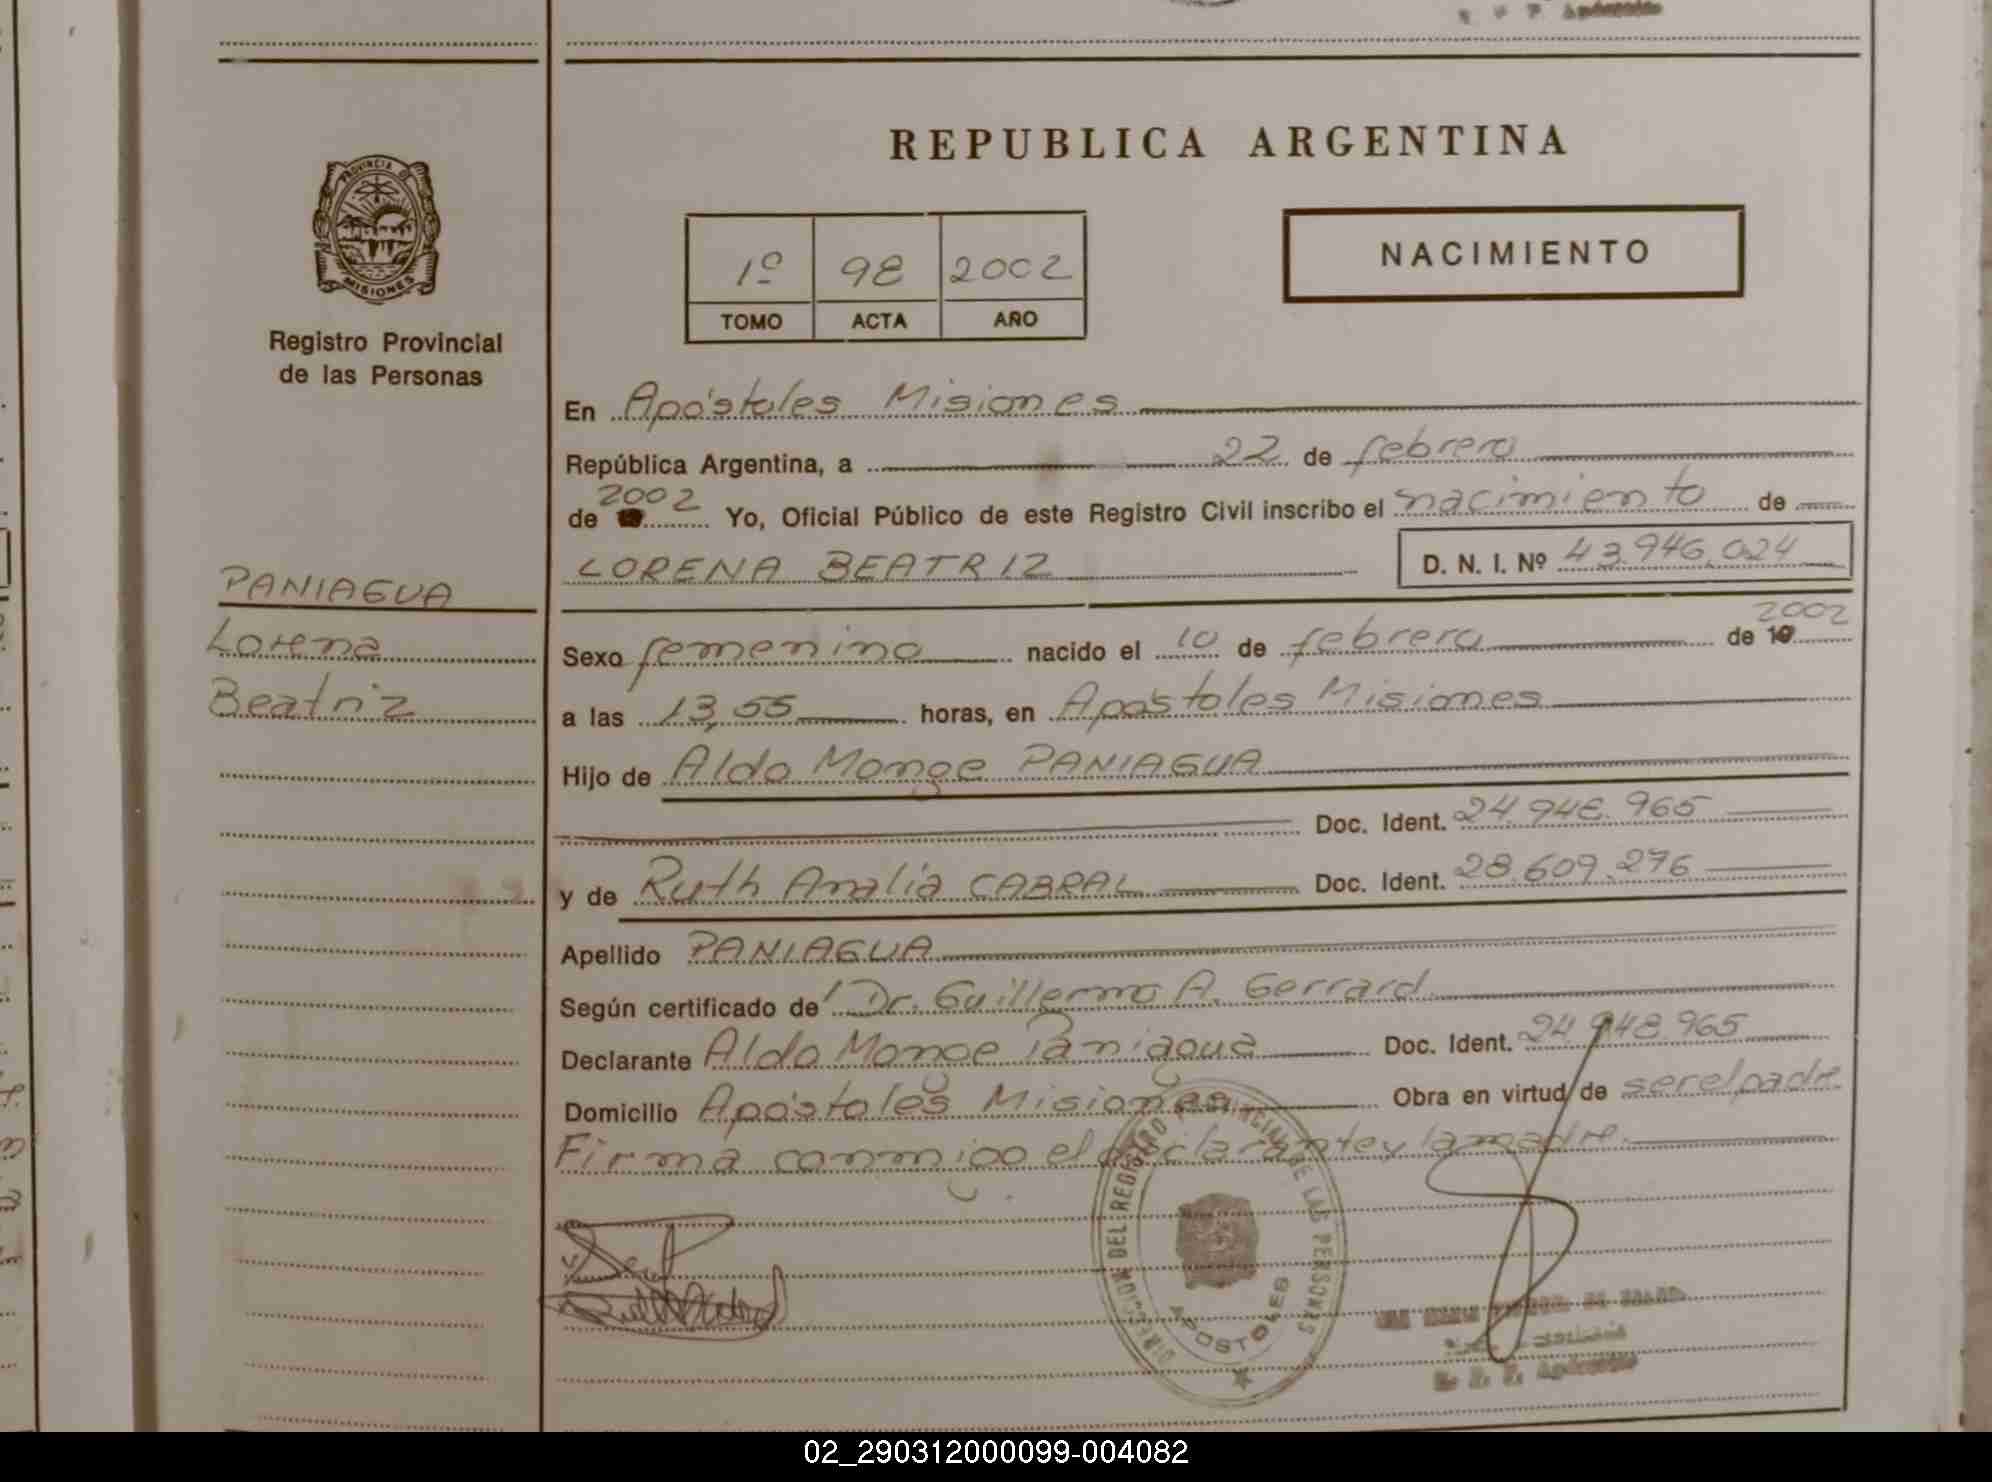 REPUBLICA ARGENTINA
PROVINCIA DE
MISIONES
Registro Provincial
de las Personas
1º 98 2002
TOMO ACTA AÑO
NACIMIENTO
En Apóstoles Misiones
República Argentina, a 22 de febrero
de 2002 Yo, Oficial Público de este Registro Civil inscribo el nacimiento de
LORENA BEATRIZ D. N. I. Nº 43.946.024
PANIAGUA
Lorena
Beatriz
Sexo femenino nacido el 10 de febrero de 19 2002
a las 13,55 horas, en Apóstoles Misiones
Hijo de Aldo Monge PANIAGUA
Doc. Ident. 24.948.965
y de Ruth Analia CABRAL Doc. Ident. 28.609.276
Apellido PANIAGUA
Según certificado de Dr. Guillermo A. Gerrard
Declarante Aldo Monge Paniagua Doc. Ident. 24.948.965
Domicilio Apóstoles Misiones Obra en virtud de ser el padre
Firma conmigo el declarante y la madre.
DIRECCION DEL REGISTRO PROVINCIAL DE LAS PERSONAS
APOSTOLES
R. P. P. Apóstoles
02_290312000099-004082